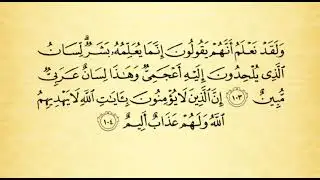 وَلَقَدْ نَعْلَمُ أَنَّهُمْ يَقُولُونَ إِنَّمَا يُعَلِّمُهُۥ بَشَرٌۗ لِّسَانُ
ٱلَّذِى يُلْحِدُونَ إِلَيْهِ أَعْجَمِىٌّ وَهَٰذَا لِسَانٌ عَرَبِىٌّ
مُّبِينٌ ١٠٣ إِنَّ ٱلَّذِينَ لَا يُؤْمِنُونَ بِـَٔايَٰتِ ٱللَّهِ لَا يَهْدِيهِمُ
ٱللَّهُ وَلَهُمْ عَذَابٌ أَلِيمٌ ١٠٤